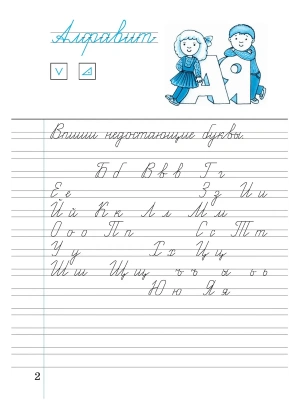 Алфавит
АЯ
Впиши недостающие буквы.
Б б В в в Г г
Е е З з И и
Й й К к Л л М м
О о о П п С с Т т
У у Х х Ц ц
Ш ш Щ щ ъ ъ ы ь ь
Ю ю Я я
2